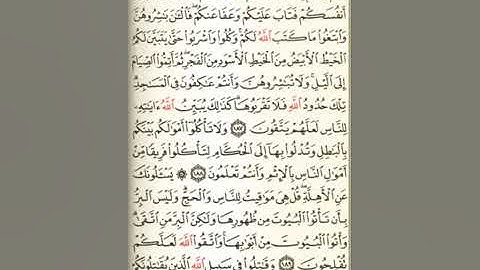 أَنفُسَكُمْ فَتَابَ عَلَيْكُمْ وَعَفَا عَنكُمْ ۖ فَالْـَٰٔنَ بَـٰشِرُوهُنَّ
وَابْتَغُوا۟ مَا كَتَبَ اللَّهُ لَكُمْ ۚ وَكُلُوا۟ وَاشْرَبُوا۟ حَتَّىٰ يَتَبَيَّنَ لَكُمُ
الْخَيْطُ الْأَبْيَضُ مِنَ الْخَيْطِ الْأَسْوَدِ مِنَ الْفَجْرِ ۖ ثُمَّ أَتِمُّوا۟ الصِّيَامَ
إِلَى الَّيْلِ ۚ وَلَا تُبَـٰشِرُوهُنَّ وَأَنتُمْ عَـٰكِفُونَ فِى الْمَسَـٰجِدِ ۗ
تِلْكَ حُدُودُ اللَّهِ فَلَا تَقْرَبُوهَا ۗ كَذَٰلِكَ يُبَيِّنُ اللَّهُ ءَايَـٰتِهِۦ
لِلنَّاسِ لَعَلَّهُمْ يَتَّقُونَ ١٨٧ وَلَا تَأْكُلُوٓا۟ أَمْوَٰلَكُم بَيْنَكُم
بِالْبَـٰطِلِ وَتُدْلُوا۟ بِهَآ إِلَى الْحُكَّامِ لِتَأْكُلُوا۟ فَرِيقًا مِّنْ
أَمْوَٰلِ النَّاسِ بِالْإِثْمِ وَأَنتُمْ تَعْلَمُونَ ١٨٨ ۞ يَسْـَٔلُونَكَ
عَنِ الْأَهِلَّةِ ۖ قُلْ هِىَ مَوَٰقِيتُ لِلنَّاسِ وَالْحَجِّ ۗ وَلَيْسَ الْبِرُّ
بِأَن تَأْتُوا۟ الْبُيُوتَ مِن ظُهُورِهَا وَلَـٰكِنَّ الْبِرَّ مَنِ اتَّقَىٰ ۗ
وَأْتُوا۟ الْبُيُوتَ مِنْ أَبْوَٰبِهَا ۚ وَاتَّقُوا۟ اللَّهَ لَعَلَّكُمْ
تُفْلِحُونَ ١٨٩ وَقَـٰتِلُوا۟ فِى سَبِيلِ اللَّهِ الَّذِينَ يُقَـٰتِلُونَكُمْ